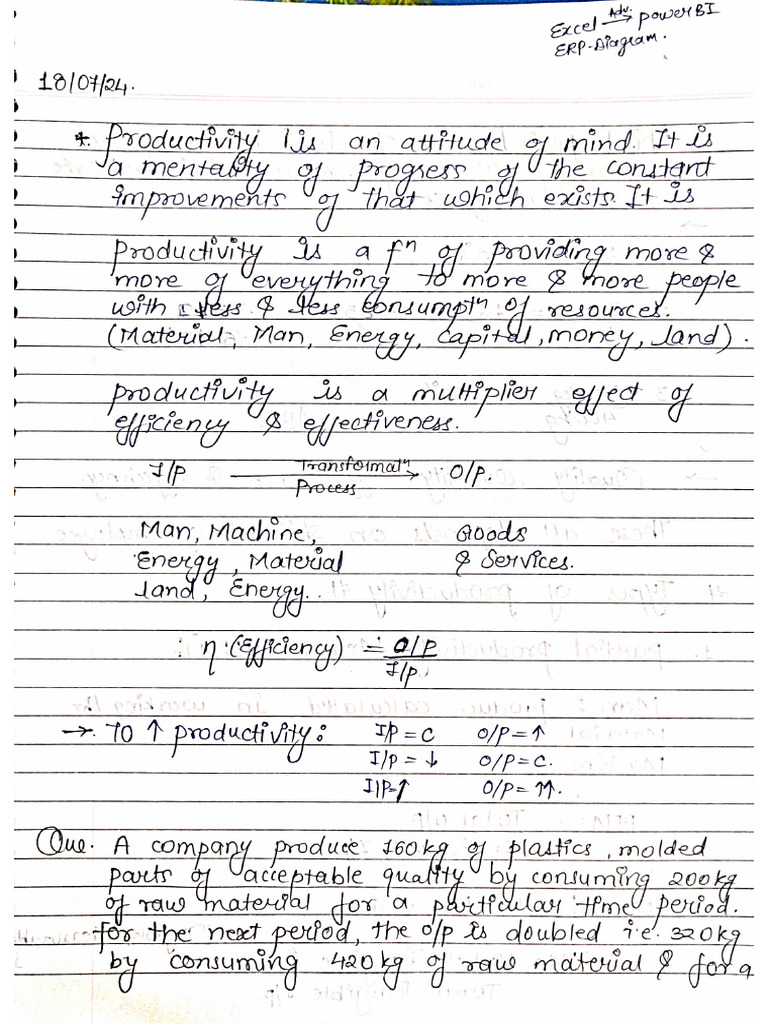 Excel Adv. → powerBI
ERP-Diagram.
18/07/24.
* Productivity is an attitude of mind. It is
a mentality of progress of the constant
improvements of that which exists. It is
productivity is a fⁿ of providing more &
more of everything to more & more people
with less & less consumptⁿ of resources.
(Material, Man, Energy, capital, money, land).
productivity is a multiplier effect of
efficiency & effectiveness.
I/P Transformatⁿ Process → O/P.
Man, Machine, Goods
Energy, Material & Services.
land, Energy..
η (Efficiency) = O/P / I/P
→ To ↑ productivity: I/P = C O/P = ↑
I/P = ↓ O/P = C.
I/P = ↑ O/P = ↑↑.
Que. A company produce 160kg of plastics, molded
parts of acceptable quality by consuming 200kg
of raw material for a particular time period.
for the next period, the O/P is doubled i.e. 320kg
by consuming 420kg of raw material & for a